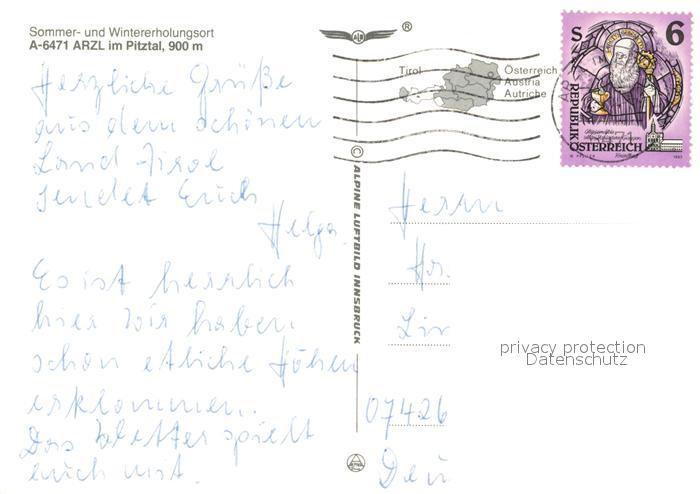 Sommer- und Wintererholungsort
A-6471 ARZL im Pitztal, 900 m
Herzliche Grüße
aus dem schönen
Land Tirol
sendet Euch
Helga.
Es ist herrlich
hier wir haben
schon etliche Höhen
erklommen.
Das Wetter spielt
auch mit.
®
Tirol
Österreich
Austria
Autriche
S 6
REPUBLIK
ÖSTERREICH
1993
© ALPINE LUFTBILD INNSBRUCK
Herrn
Hr.
privacy protection
Datenschutz
07426